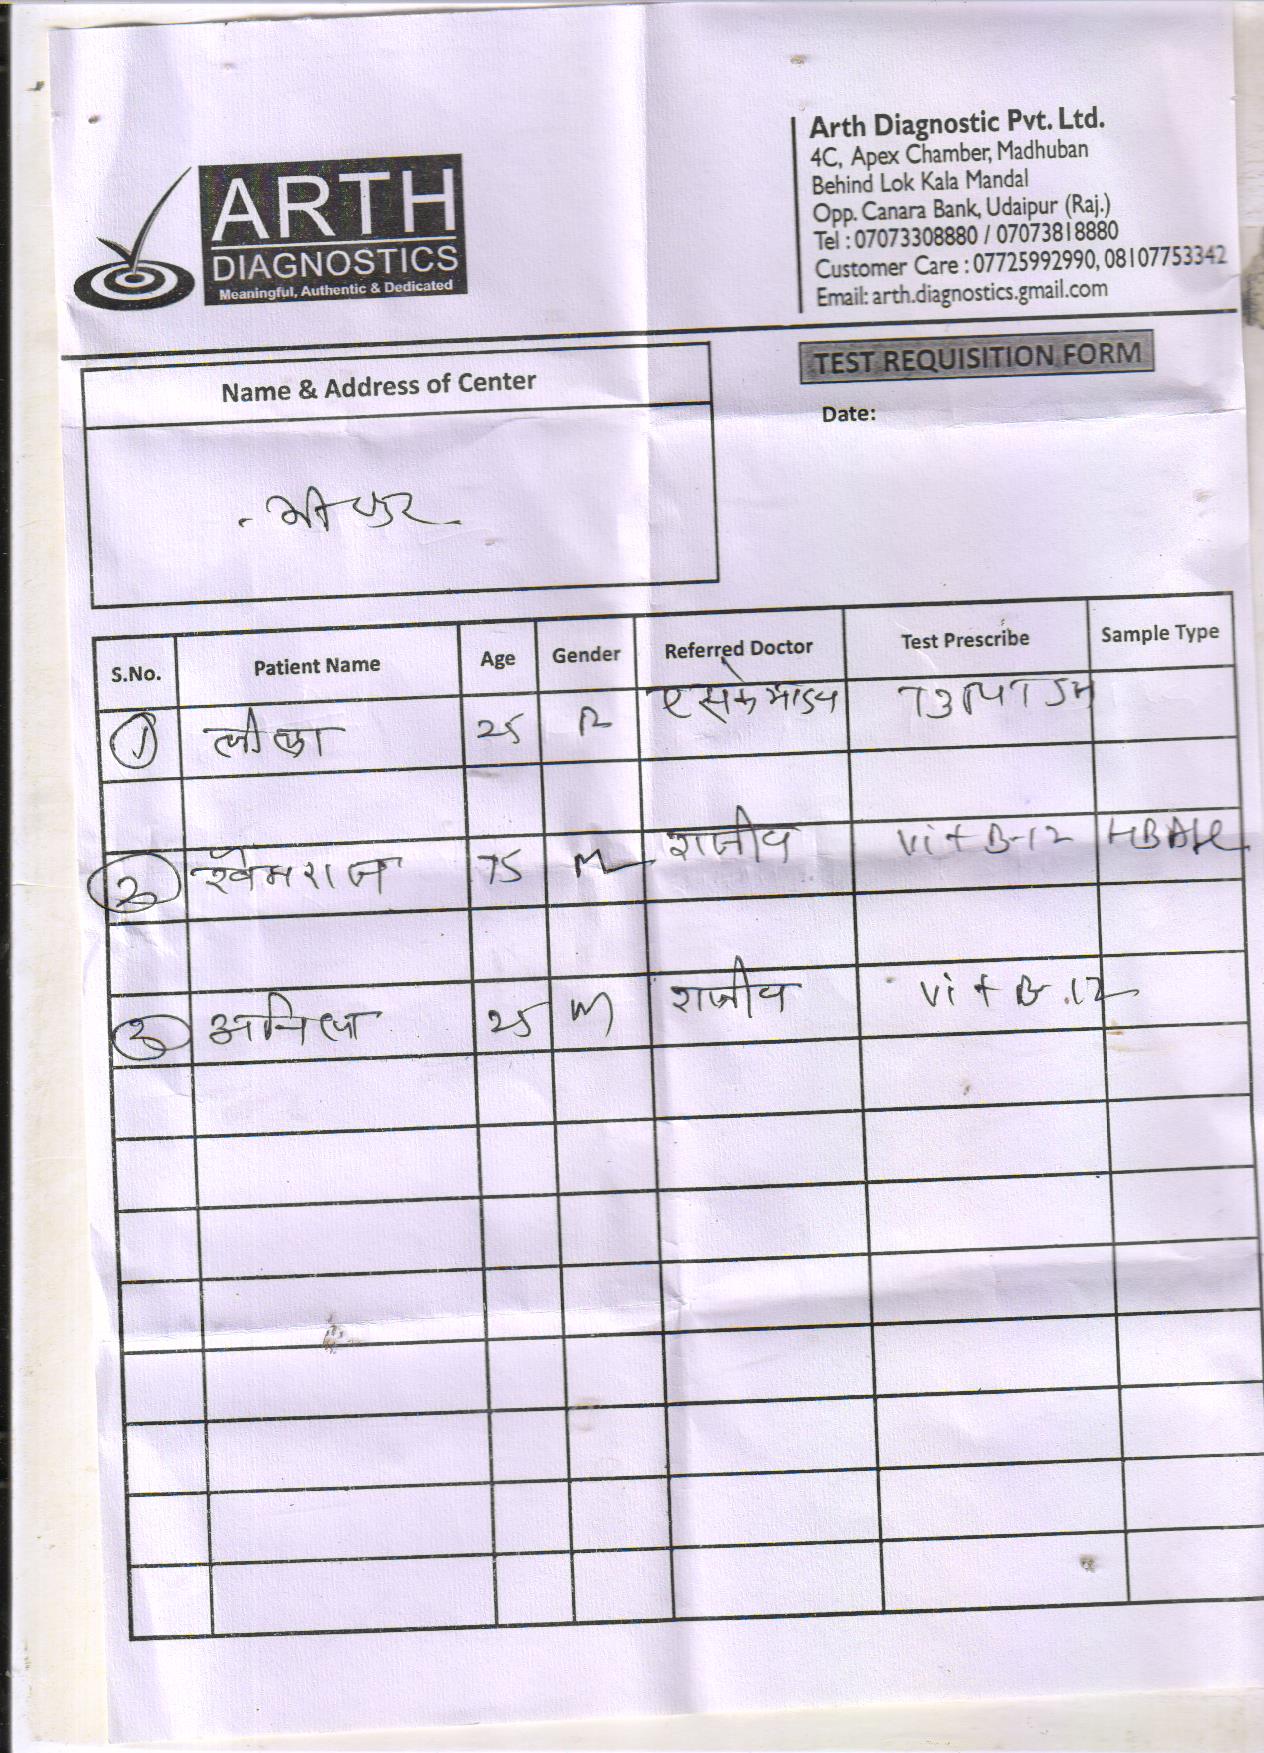 ARTH
DIAGNOSTICS
Meaningful, Authentic & Dedicated
Arth Diagnostic Pvt. Ltd.
4C, Apex Chamber, Madhuban
Behind Lok Kala Mandal
Opp. Canara Bank, Udaipur (Raj.)
Tel : 07073308880 / 07073818880
Customer Care : 07725992990, 08107753342
Email: arth.diagnostics.gmail.com
TEST REQUISITION FORM
Name & Address of Center
Date:
S.No. Patient Name Age Gender Referred Doctor Test Prescribe Sample Type
1 25
2 खेमराज 75 M राजीव Vit B-12
3 अनिल 25 M राजीव Vit B.12